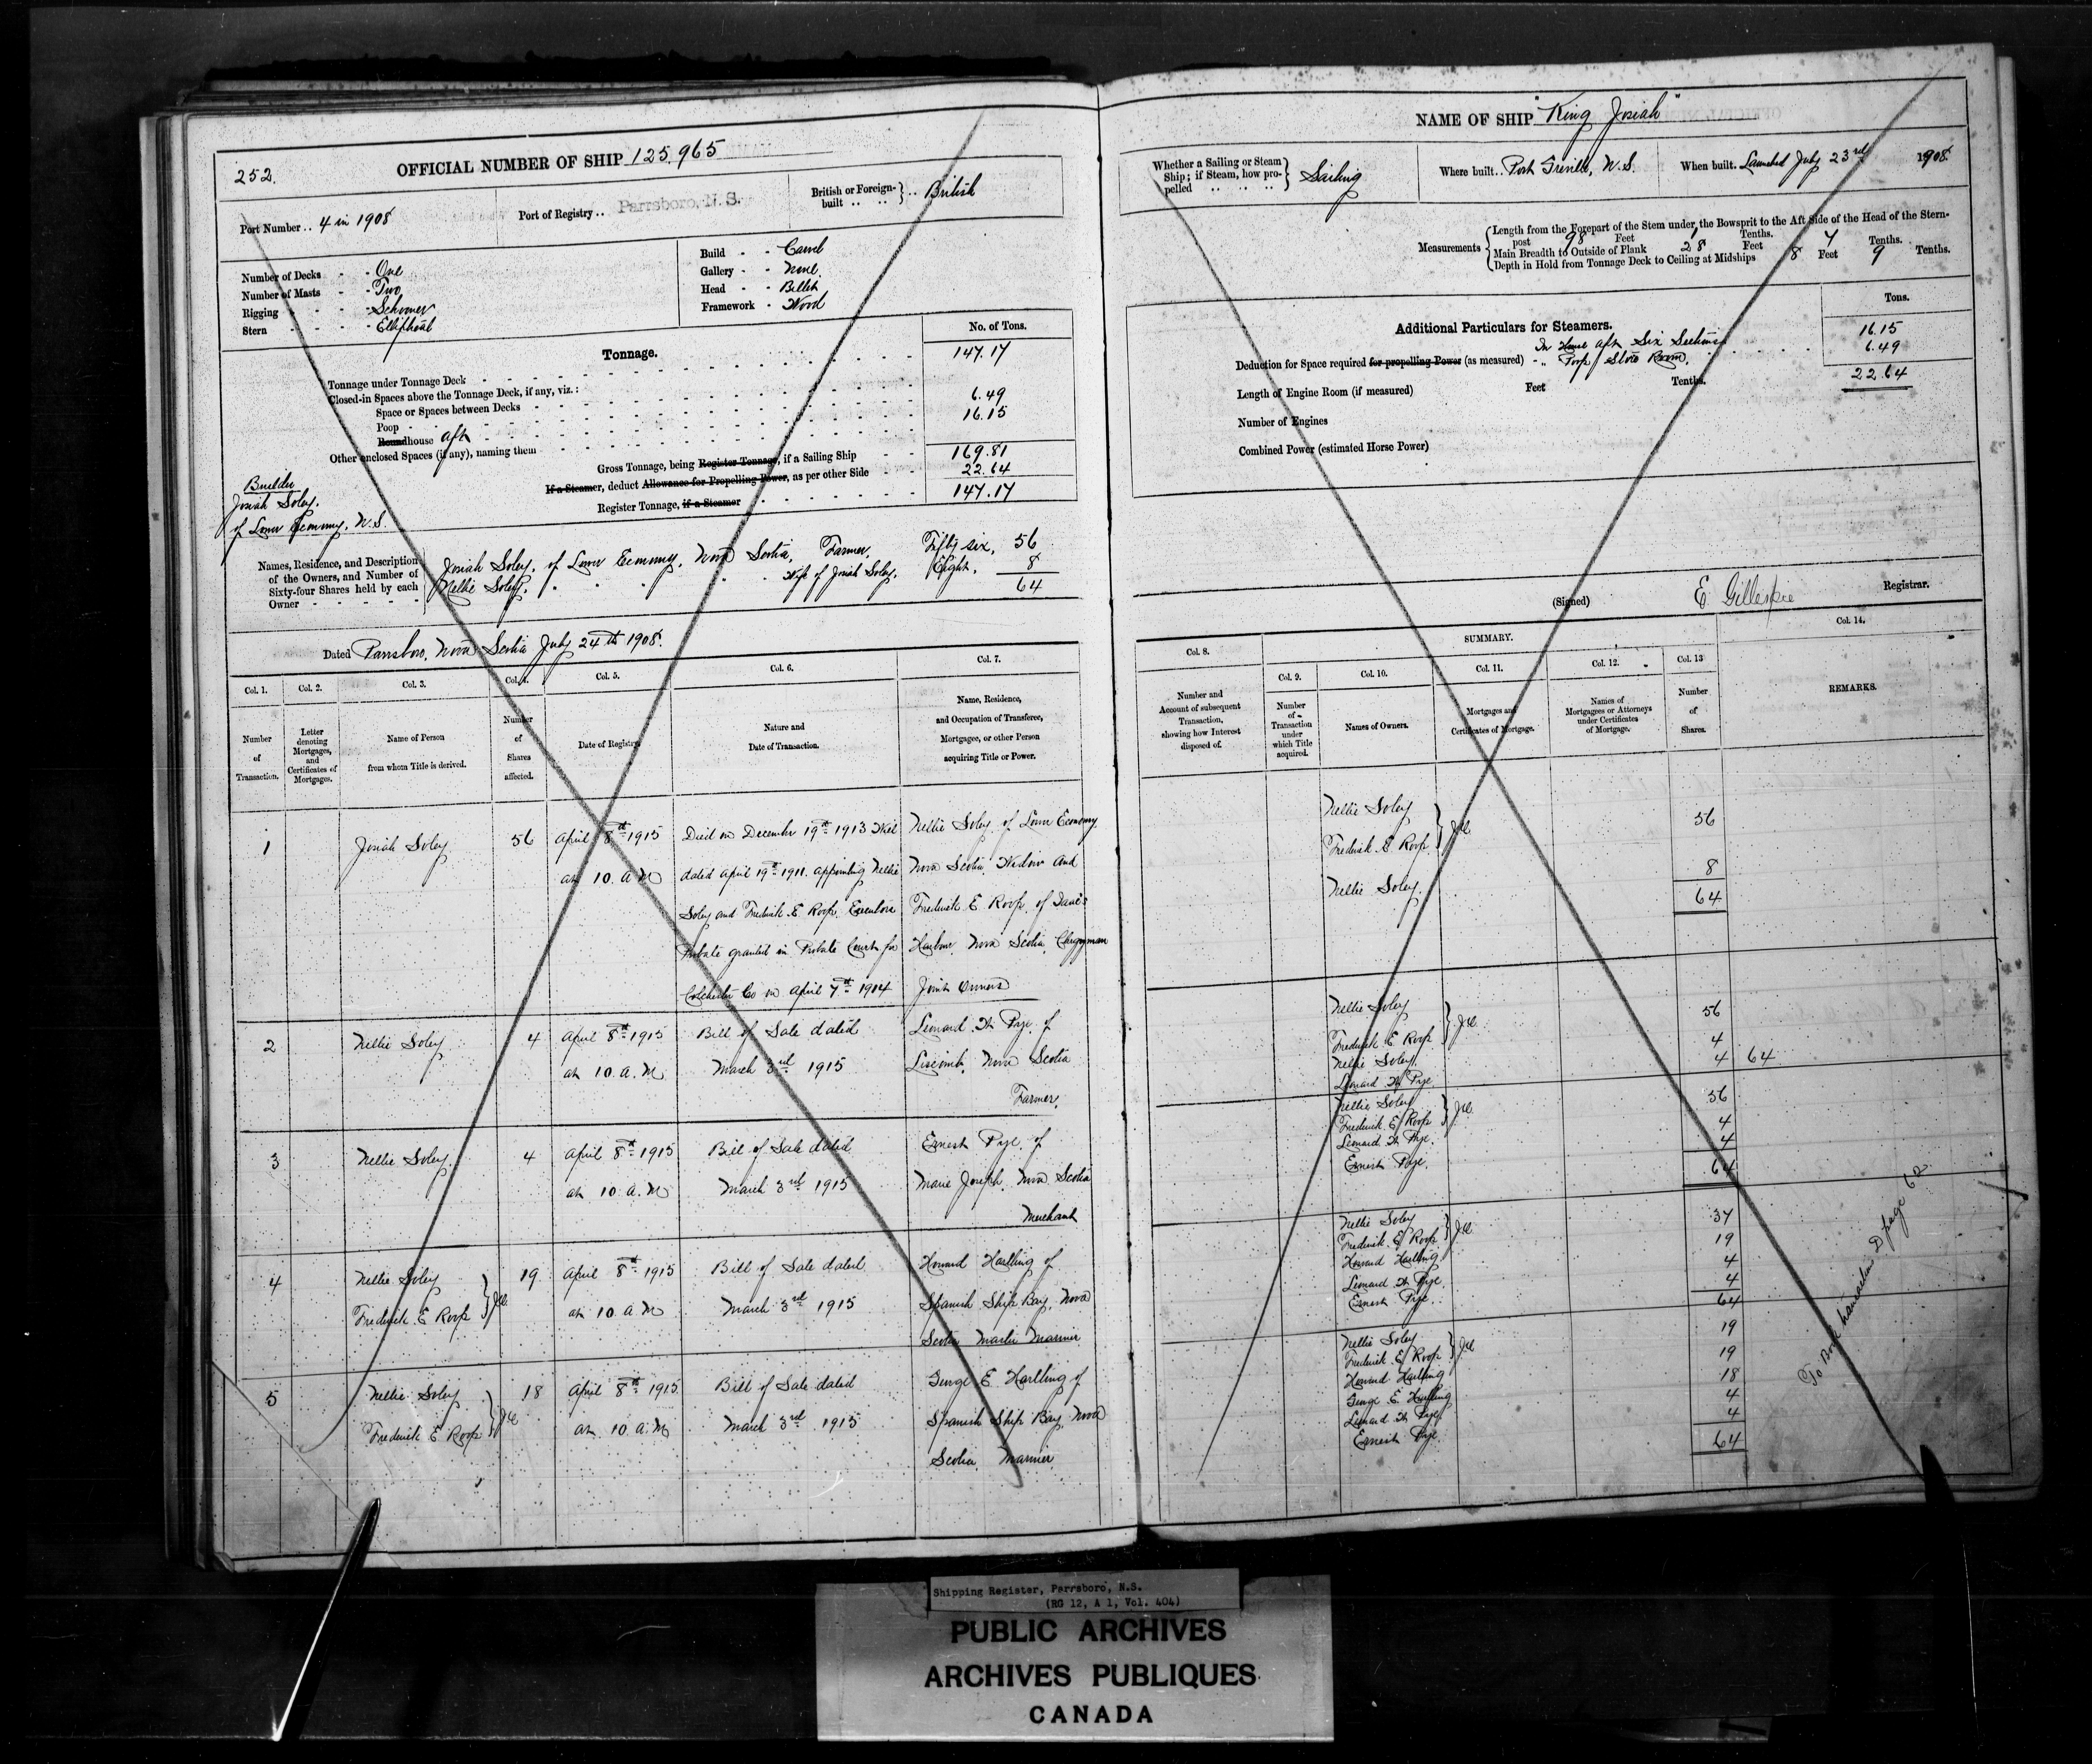 252.
OFFICIAL NUMBER OF SHIP 125,965
Port Number .. 4 in 1908
Port of Registry .. Parrsboro, N.S.
British or Foreign-built .. .. } .. British
Number of Decks - - One
Number of Masts - - Two
Rigging - - - - Schooner
Stern - - - - Elliptical
Build - - Carvel
Gallery - - None.
Head - - Billet
Framework - Wood
Tonnage.
No. of Tons.
Tonnage under Tonnage Deck 147.17
Closed-in Spaces above the Tonnage Deck, if any, viz.:
Space or Spaces between Decks
Poop 6.49
Roundhouse Aft 16.15
Other enclosed Spaces (if any), naming them
Gross Tonnage, being Register Tonnage, if a Sailing Ship 169.81
If a Steamer, deduct Allowance for Propelling Power, as per other Side 22.64
Register Tonnage, if a Steamer 147.17
Builder
Josiah Soley.
of Lower Economy, N.S.
Names, Residence, and Description
of the Owners, and Number of
Sixty-four Shares held by each
Owner
Josiah Soley, of Lower Economy, Nova Scotia, Farmer. Fifty six, 56
Nellie Soley. " " " " Wife of Josiah Soley. Eight. 8
64
Dated Parrsboro, Nova Scotia July 24th 1908.
Col. 1. Col. 2. Col. 3. Col. 4. Col. 5. Col. 6. Col. 7.
Number of Transaction.
Letter denoting Mortgages, and Certificates of Mortgages.
Name of Person from whom Title is derived.
Number of Shares affected.
Date of Registry.
Nature and Date of Transaction.
Name, Residence, and Occupation of Transferee, Mortgagee, or other Person acquiring Title or Power.
1 Josiah Soley 56 April 8th 1915 Died on December 19th 1913 Will Nellie Soley of Lower Economy
at 10. A M dated April 19th 1911. appointing Nellie Nova Scotia Widow and
Soley and Frederick E Roop Executors Frederick E Roop, of
Probate granted in Probate Court for Harbour Nova Scotia Clergyman
Colchester Co on April 7th 1914 Joint Owners
2 Nellie Soley 4 April 8th 1915 Bill of Sale dated Leonard W Pye of
at 10. a. M March 3rd 1915 Liscomb, Nova Scotia
Farmer.
3 Nellie Soley. 4 April 8th 1915 Bill of Sale dated Ernest Pye of
at 10 a. M March 3rd 1915 Marie Joseph, Nova Scotia
Merchant
4 Nellie Soley 19 April 8th 1915 Bill of Sale dated Howard Hartling of
Frederick E Roop } J.O. at 10 a M March 3rd 1915 Spanish Ship Bay, Nova
Scotia Master Mariner
5 Nellie Soley 18 April 8th 1915 Bill of Sale dated George E Hartling of
Frederick E Roop } J.O. at 10 a. M March 3rd 1915 Spanish Ship Bay Nova
Scotia Mariner
NAME OF SHIP "King Josiah"
Whether a Sailing or Steam Ship; if Steam, how propelled .. .. .. } Sailing
Where built.. Port Greville, N.S.
When built. Launched July 23rd 1908
Measurements
Length from the Forepart of the Stem under the Bowsprit to the Aft Side of the Head of the Stern-
post 98 Feet 1 Tenths.
Main Breadth to Outside of Plank 28 Feet 7 Tenths.
Depth in Hold from Tonnage Deck to Ceiling at Midships 8 Feet 9 Tenths.
Tons.
Additional Particulars for Steamers.
In House aft Six Sections 16.15
Deduction for Space required for propelling Power (as measured) - " Poop / Store Room. 6.49
22.64
Length of Engine Room (if measured) Feet Tenths.
Number of Engines
Combined Power (estimated Horse Power)
(Signed) E Gillespie Registrar.
SUMMARY.
Col. 8. Col. 9. Col. 10. Col. 11. Col. 12. Col. 13 Col. 14.
Number and Account of subsequent Transaction, showing how Interest disposed of.
Number of Transaction under which Title acquired.
Names of Owners.
Mortgages and Certificates of Mortgage.
Names of Mortgagees or Attorneys under Certificates of Mortgage.
Number of Shares.
REMARKS.
Nellie Soley
Frederick E Roop } J.O. 56
Nellie Soley. 8
64
Nellie Soley
Frederick E Roop } J.O. 56
Nellie Soley 4
Leonard W Pye 4 64
Nellie Soley
Frederick E Roop } J.O. 56
Leonard W Pye. 4
Ernest Pye. 4
64
Nellie Soley
Frederick E Roop } J.O. 37
Howard Hartling 19
Leonard W Pye 4
Ernest Pye. 4
64
Nellie Soley
Frederick E Roop } J.O. 19
Howard Hartling 19
George E Hartling 18
Leonard W Pye 4
Ernest Pye 4
64
To Book transaction D page 62
Shipping Register, Parrsboro, N.S.
(RG 12, A 1, Vol. 404)
PUBLIC ARCHIVES
ARCHIVES PUBLIQUES
CANADA